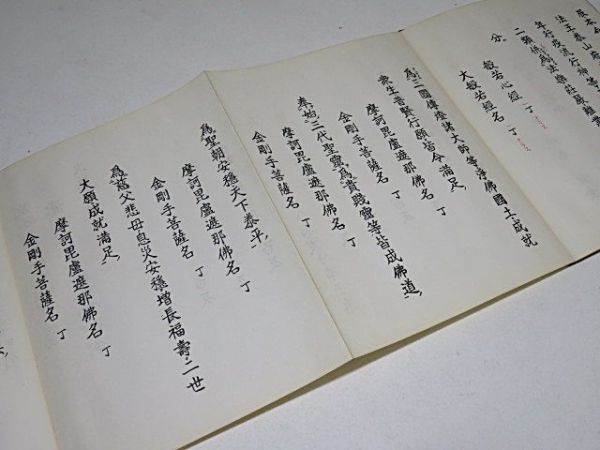 年行疫流行神等
二類倂爲法樂莊嚴
分
般若心經 丁
大般若經名 丁
爲三國傳燈諸大師等淨佛國土成就
衆生普賢行願皆令滿足
摩訶毘盧遮那佛名 丁
金剛手菩薩名 丁
奉始三代聖靈爲貴賤靈等皆成佛道
摩訶毘盧遮那佛名 丁
金剛手菩薩名 丁
爲聖朝安穩天下泰平
摩訶毘盧遮那佛名 丁
金剛手菩薩名 丁
爲慈父悲母息災安穩增長福壽二世
大願成就滿足
摩訶毘盧遮那佛名 丁
金剛手菩薩名 丁